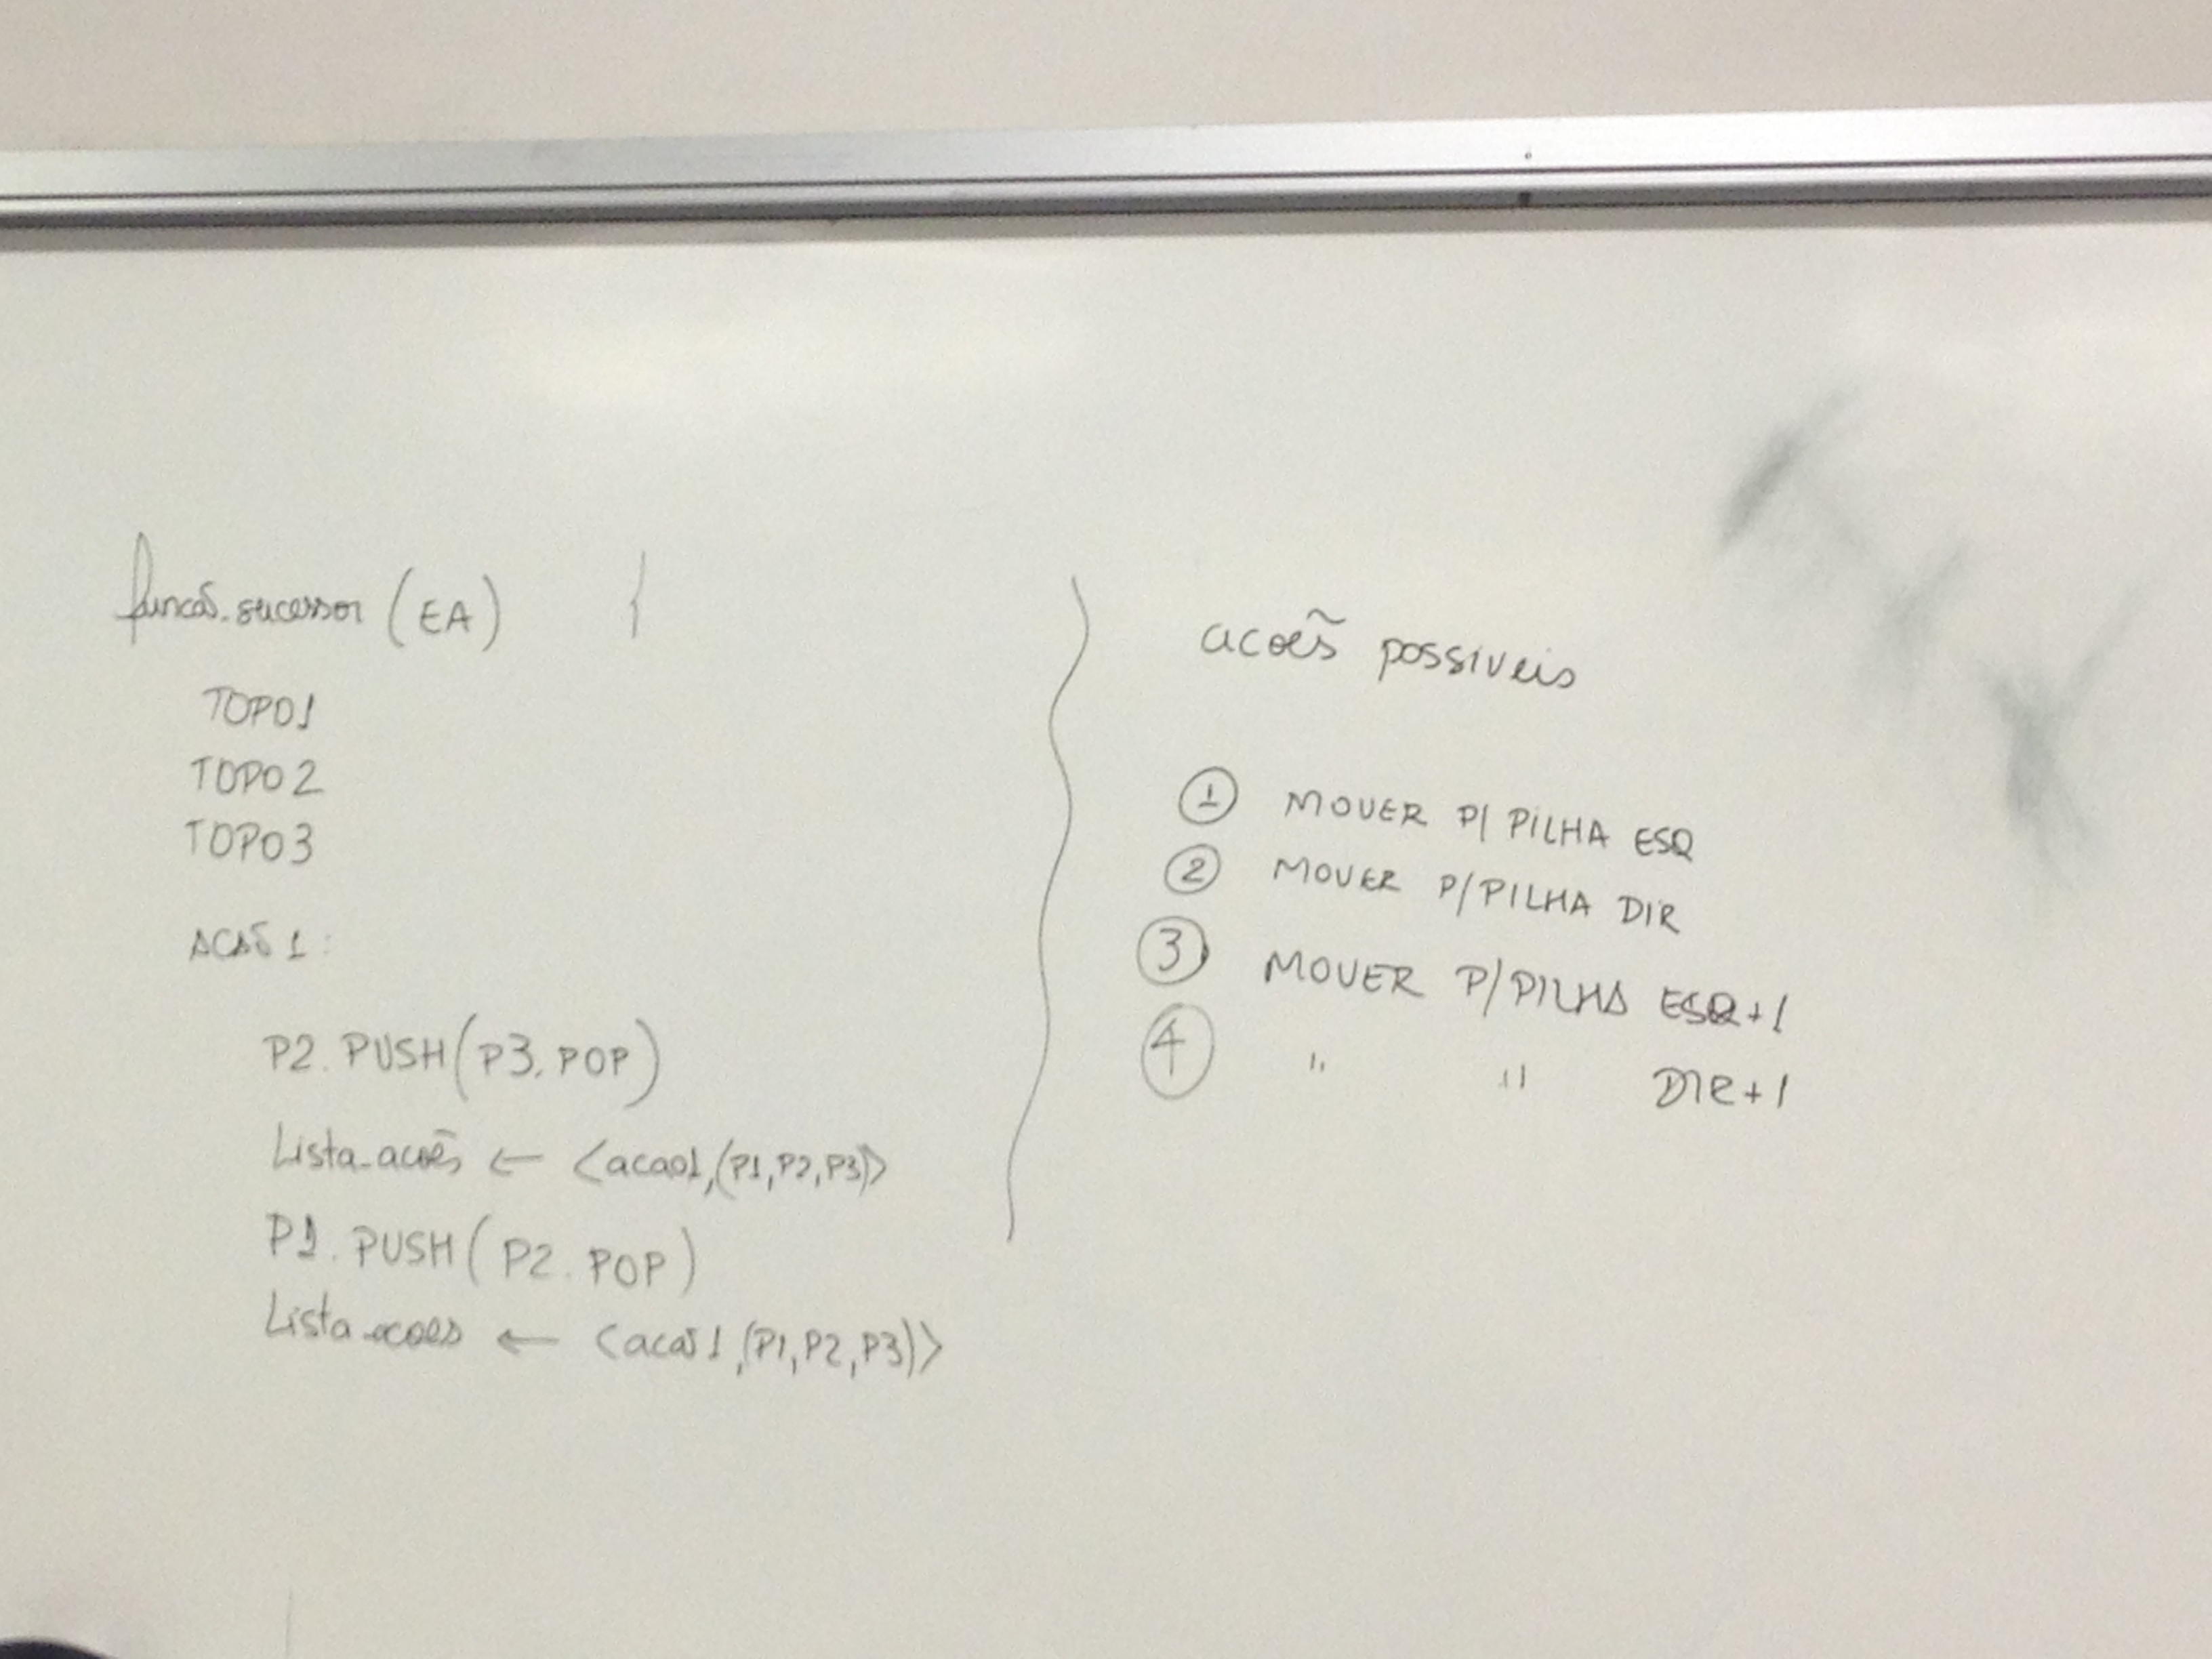 funcão_sucessor (EA) {
TOPO1
TOPO2
TOPO3
ACÃO 1:
P2.PUSH(P3.POP)
Lista_acões ← <acao1,(P1,P2,P3)>
P1.PUSH(P2.POP)
Lista_acoes ← <acaõ1,(P1,P2,P3)>
acoẽs possiveis
① MOVER P/ PILHA ESQ
② MOVER P/PILHA DIR
③ MOVER P/PILHA ESQ+1
④ " " DIR+1